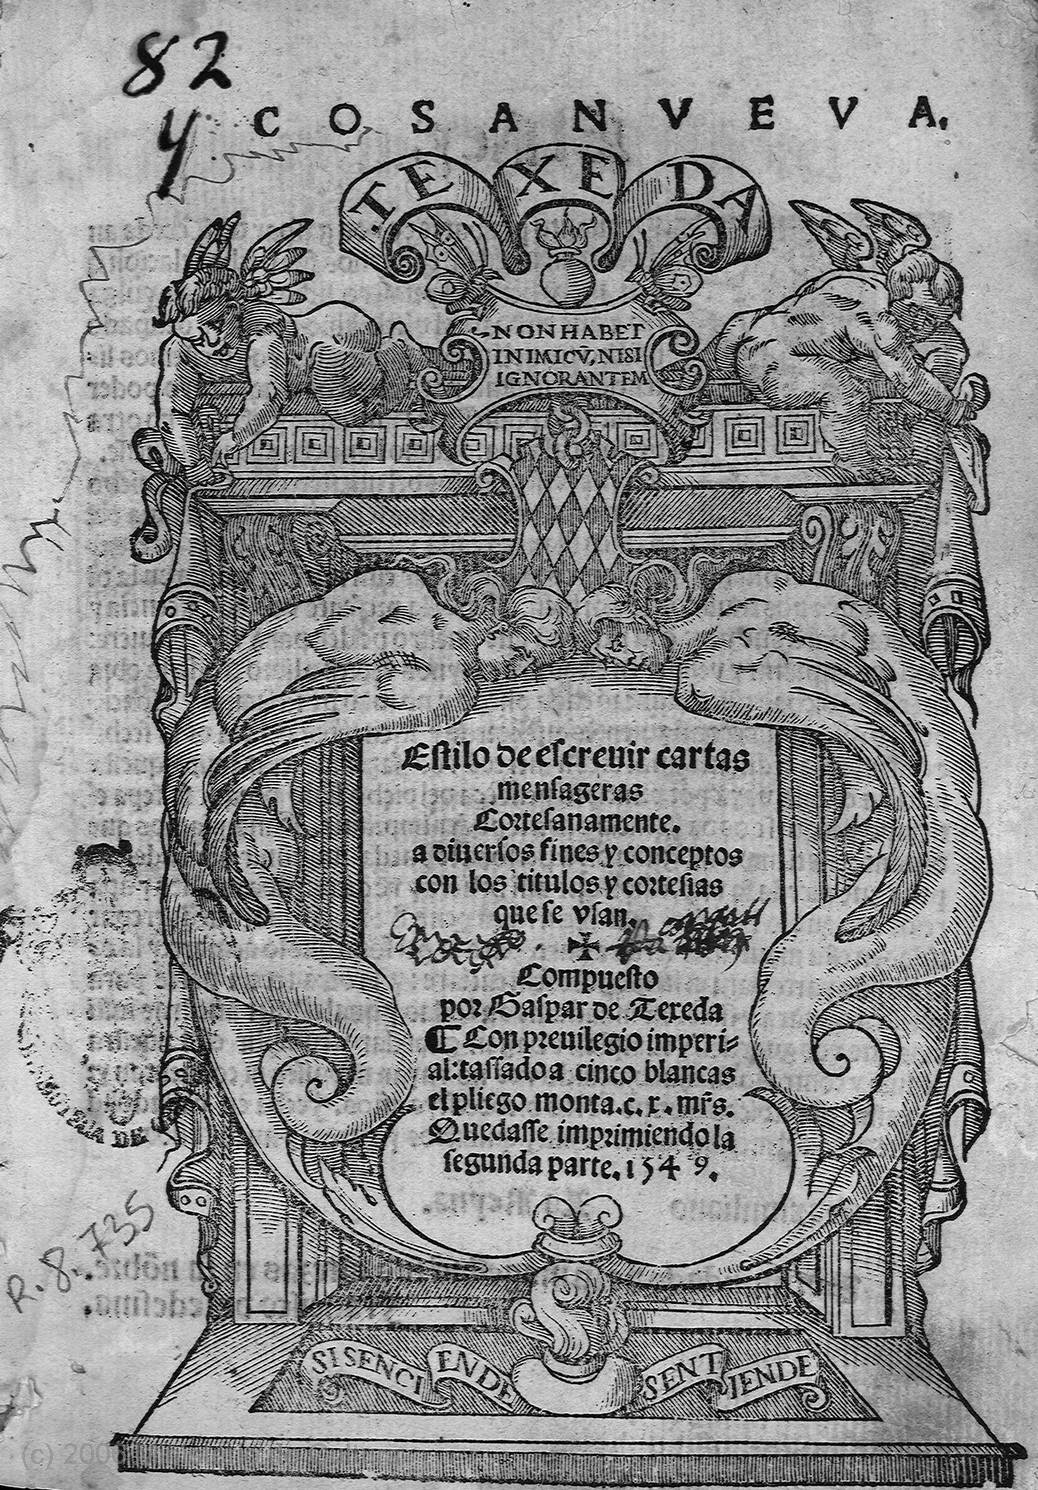 82
y
COSA NVEVA.
TEXEDA
NON HABET
INIMICṼ, NISI
IGNORANTEM
Estilo de escreuir cartas
mensageras
Cortesanamente.
a diuersos fines y conceptos
con los titulos y cortesias
que se vsan.
Compuesto
por Gaspar de Texeda
¶ Con preuilegio imperi-
al: tassado a cinco blancas
el pliego monta .c.x. mr̃s.
Quedasse imprimiendo la
segunda parte. 1549.
R. 8. 735
SI SENCIENDE SENTIENDE
(c) 200